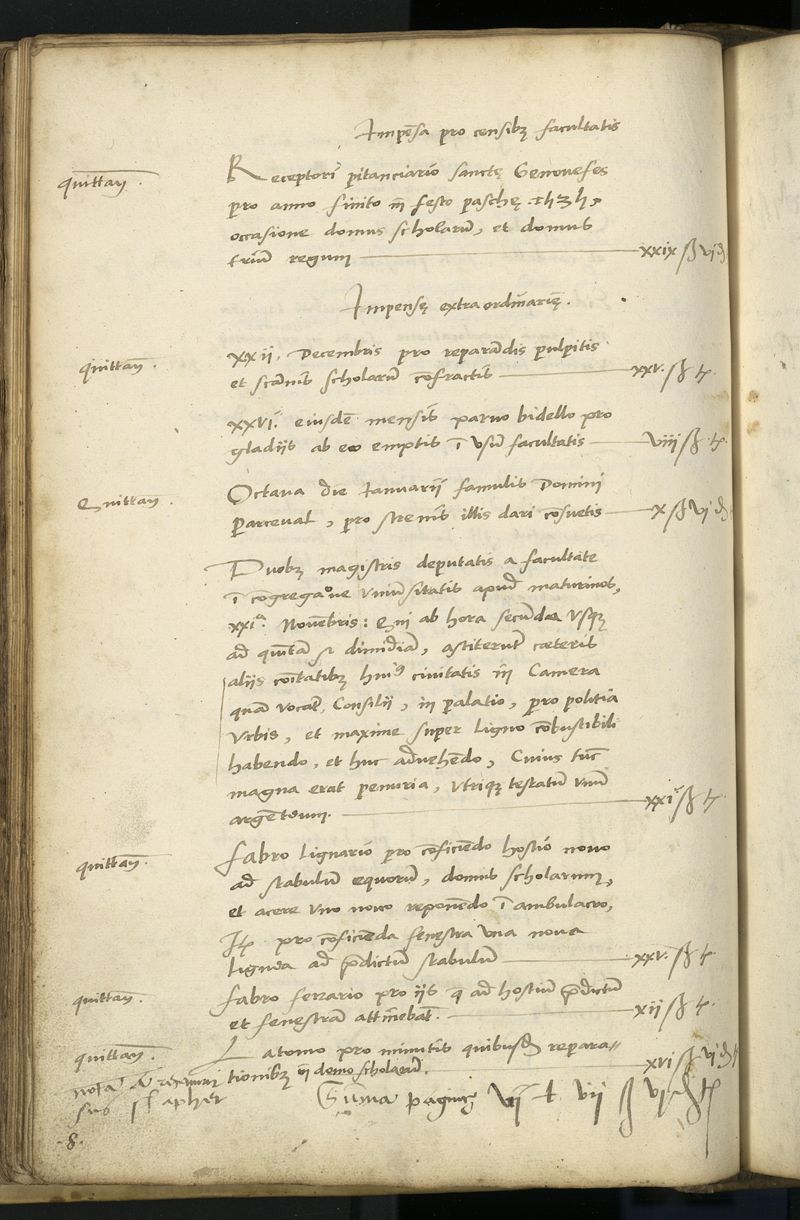 Impēsa pro censibꝫ facultatis
quittaꝫ.
Receptori pitanciario sanctę Genouefes
pro anno finito ī festo paschę 1535,
occasione domus scholarū, et domus
triū regum xxix ß vi ₰
Impensę extraordinarię.
quittaꝫ.
xxii. Decembris pro reparādis pulpitis
et scānis scholarū cōfractis xxv. ß t.
xxvi. eiusdē mensis paruo bidello pro
gladiis ab eo emptis ī vsū facultatis viii ß t.
Quittaꝫ.
Octaua die Ianuarii famulis Domini
Parceual, pro strenis illis dari cōsuetis x ß vi ₰
Duobꝫ magistris deputatis a facultate
ī cōgregatione vniuersitatis apud maturinos,
xxiᵃ. Nouēbris: Qui ab hora secūda vsqꝫ
ad quītā et dimidiā, astiterūt cæteris
aliis cōitatibꝫ huiꝰ ciuitatis in Camera
quam vocāt Consilii, in palatio, pro politia
vrbis, et maxime super ligno cōbustibili
habendo, et huc aduehēdo, Cuius tūc
magna erat penuria, vtriqꝫ testatū vnū
argēteum. xxi ß t.
quittaꝫ.
Fabro lignario pro cōficiēdo hostio nouo
ad stabulum equorū, domus scholarum,
et acere vno nouo reponēdo ī ambulacro,
Itē pro cōficiēda fenestra vna noua
lignea ad p̄dictū stabulū xxv. ß t.
quittaꝫ.
Fabro ferrario pro iis q̄ ad hostiū p̄dictū
et fenestrā attinebāt. xii ß t.
quittaꝫ.
Latomo pro minutis quibusdā repara//
tionibꝫ in domo scholarū. xvi ß vi ₰ t
Sūma paginę vi t vii ß vi ₰ t
8.